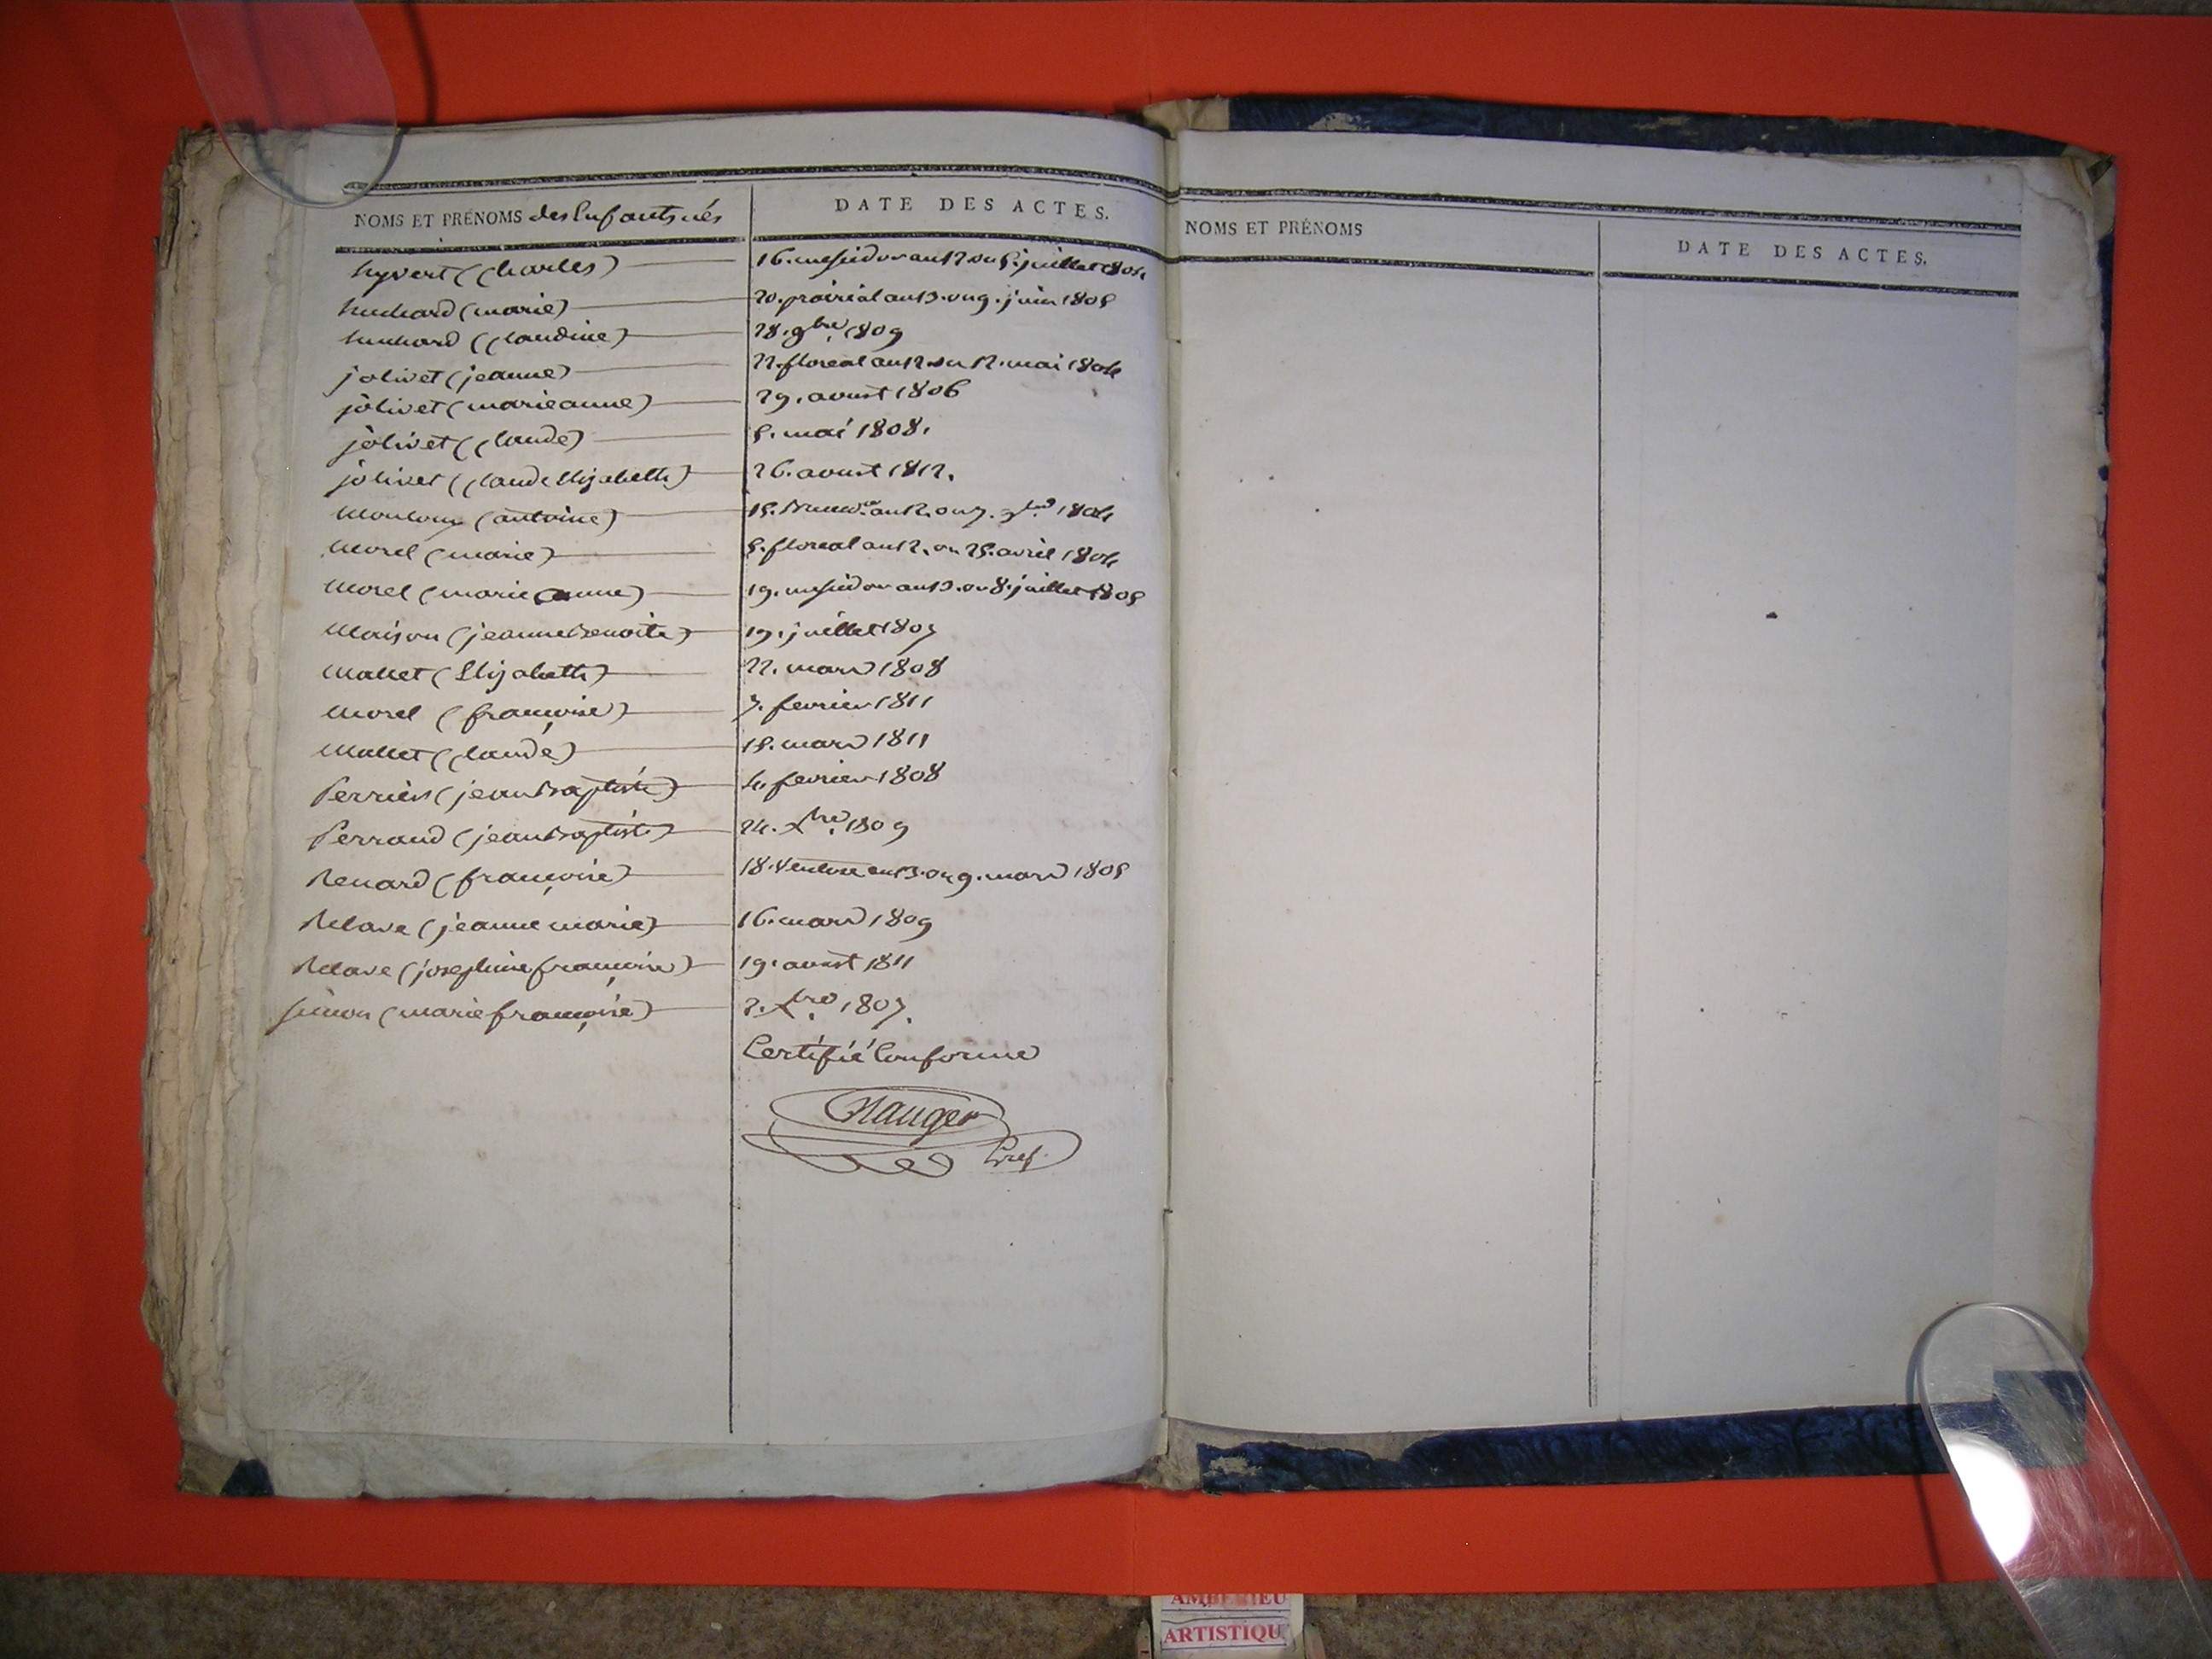 NOMS ET PRÉNOMS des Enfants nés DATE DES ACTES.
hyvert (Charles) 16. messidor an 12 ou 5. juillet 1804
huchard (marie) 20. prairial an 13. ou 9. juin 1805
huchard (Claudine) 28. 9bre 1809
jolivet (jeanne) 22. floreal an 12. ou 12. mai 1804
jolivet (marie anne) 29. aoust 1806
jolivet (Claude) 5. mai 1808.
jolivet (Claude Elizabeth) 26. aoust 1812.
(antoine) 15. an 12. ou 7. 9bre 1804
Morel (marie) 5. floreal an 12. ou 25. avril 1804
Morel (marie anne) 19. messidor an 13. ou 8. juillet 1805
Maison (jeanne Benoite) 19. juillet 1807
Mallet (Elizabeth) 22. mars 1808
Morel (françoise) 7. fevrier 1811
Mallet (Claude) 15. mars 1811
Perrier (jean Baptiste) 4. fevrier 1808
Perraud (jean Baptiste) 24. Xbre 1809
Renard (françoise) 18. Ventose an 13. ou 9. mars 1805
Relave (jeanne marie) 16. mars 1809
Relave (josephine françoise) 19. aoust 1811
Simon (marie françoise) 2. Xbre 1807.
Certifié Conforme
Gref.
NOMS ET PRÉNOMS DATE DES ACTES.
AMBERIEU
ARTISTIQU